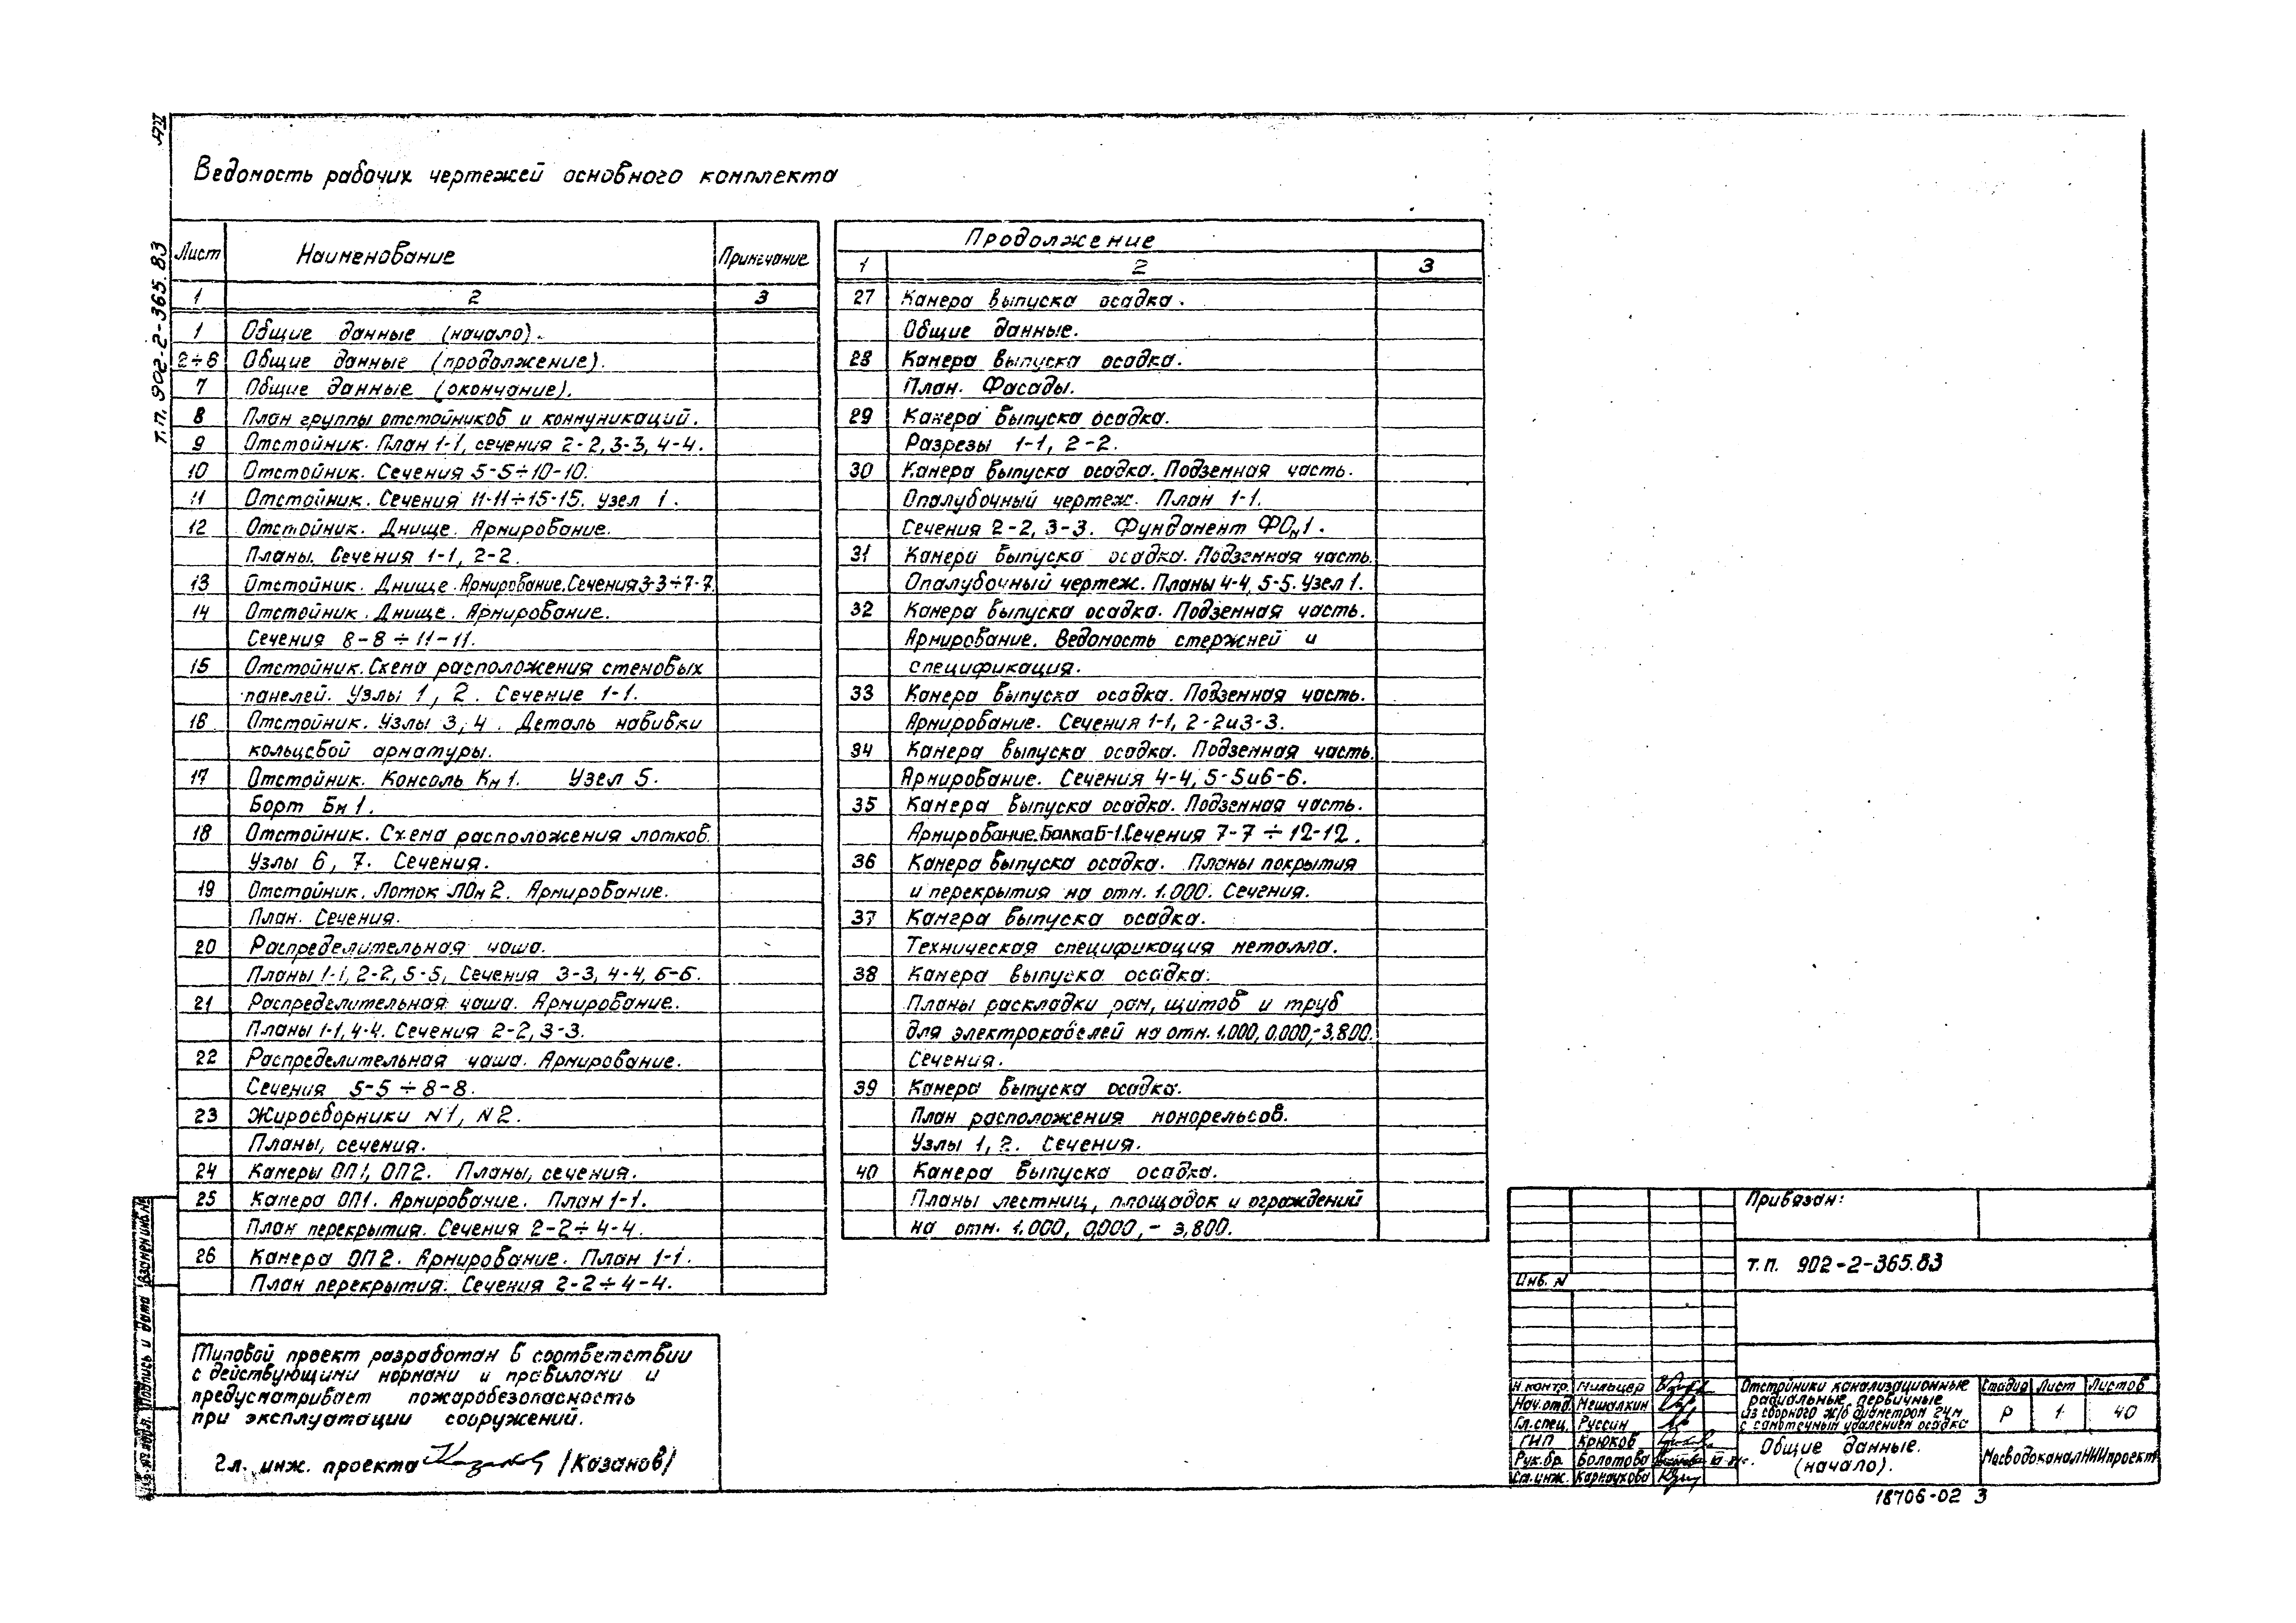 АII
т.п. 902-2-365.83
Ведомость рабочих чертежей основного комплекта
Лист Наименование Примечание
1 2 3
1 Общие данные (начало).
2÷6 Общие данные (продолжение).
7 Общие данные (окончание).
8 План группы отстойников и коммуникаций.
9 Отстойник. План 1-1, сечения 2-2, 3-3, 4-4.
10 Отстойник. Сечения 5-5÷10-10.
11 Отстойник. Сечения 11-11÷15-15. Узел 1.
12 Отстойник. Днище. Армирование.
Планы. Сечения 1-1, 2-2.
13 Отстойник. Днище. Армирование. Сечения 3-3÷7-7.
14 Отстойник. Днище. Армирование.
Сечения 8-8÷11-11.
15 Отстойник. Схема расположения стеновых
панелей. Узлы 1, 2. Сечение 1-1.
16 Отстойник. Узлы 3, 4. Деталь навивки
кольцевой арматуры.
17 Отстойник. Консоль Км1. Узел 5.
Борт Бм1.
18 Отстойник. Схема расположения лотков.
Узлы 6, 7. Сечения.
19 Отстойник. Лоток ЛОм2. Армирование.
План. Сечения.
20 Распределительная чаша.
Планы 1-1, 2-2, 5-5, Сечения 3-3, 4-4, 6-6.
21 Распределительная чаша. Армирование.
Планы 1-1, 4-4. Сечения 2-2, 3-3.
22 Распределительная чаша. Армирование.
Сечения 5-5÷8-8.
23 Жиросборники N1, N2.
Планы, сечения.
24 Камеры ОП1, ОП2. Планы, сечения.
25 Камера ОП1. Армирование. План 1-1.
План перекрытия. Сечения 2-2÷4-4.
26 Камера ОП2. Армирование. План 1-1.
План перекрытия. Сечения 2-2÷4-4.
Продолжение
1 2 3
27 Камера выпуска осадка.
Общие данные.
28 Камера выпуска осадка.
План. Фасады.
29 Камера выпуска осадка.
Разрезы 1-1, 2-2.
30 Камера выпуска осадка. Подземная часть.
Опалубочный чертеж. План 1-1.
Сечения 2-2, 3-3. Фундамент ФОм1.
31 Камера выпуска осадка. Подземная часть.
Опалубочный чертеж. Планы 4-4, 5-5. Узел 1.
32 Камера выпуска осадка. Подземная часть.
Армирование. Ведомость стержней и
спецификация.
33 Камера выпуска осадка. Подземная часть.
Армирование. Сечения 1-1, 2-2 и 3-3.
34 Камера выпуска осадка. Подземная часть.
Армирование. Сечения 4-4, 5-5 и 6-6.
35 Камера выпуска осадка. Подземная часть.
Армирование. Балка Б-1. Сечения 7-7÷12-12.
36 Камера выпуска осадка. Планы покрытия
и перекрытия на отм. 1.000. Сечения.
37 Камера выпуска осадка.
Техническая спецификация металла.
38 Камера выпуска осадка.
Планы раскладки рам, щитов и труб
для электрокабелей на отм. 1.000, 0.000, -3.800.
Сечения.
39 Камера выпуска осадка.
План расположения монорельсов.
Узлы 1, 2. Сечения.
40 Камера выпуска осадка.
Планы лестниц, площадок и ограждений
на отм. 1.000, 0,000, - 3,800.
Типовой проект разработан в соответствии
с действующими нормами и правилами и
предусматривает пожаробезопасность
при эксплуатации сооружений.
Гл. инж. проекта /Казанов/
Подпись и дата
Взамен инв. N
Привязан:
Инв. N
т.п. 902-2-365.83
Н.контр. Мильцер
Нач.отд. Мешалкин
Гл.спец. Руссин
ГИП Крюков
Рук.бр. Болотова
Ст.инж. Карнаухова
Отстойники канализационные
радиальные первичные
из сборного ж/б диаметром 24м
с самотечным удалением осадка
Стадия Лист Листов
Р 1 40
Общие данные.
(начало).
МосводоканалНИИпроект
18706-02 3